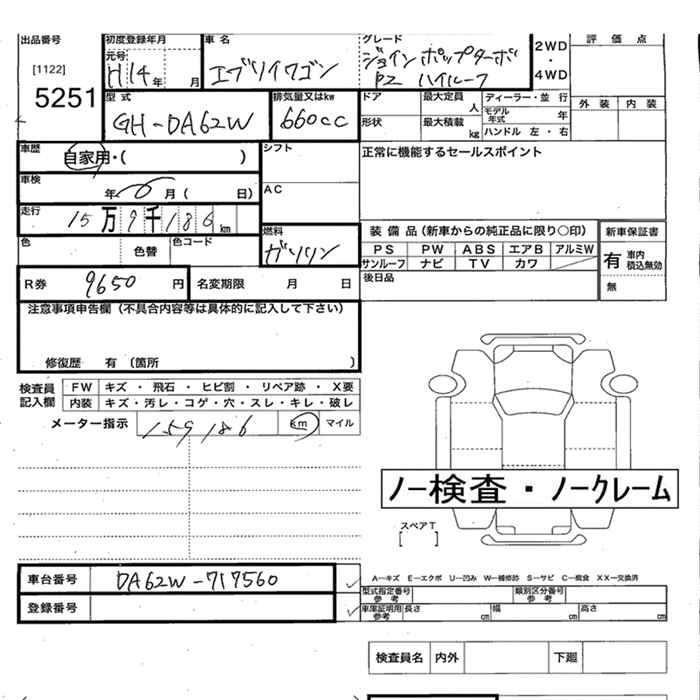 出品番号 初度登録年月 車名 グレード 評価点
[1122]
5251
元号 H14年 月
エブリイワゴン
ジョイン ポップターボ
PZ ハイルーフ
2WD・4WD
外装 内装
型式 GH-DA62W
排気量又はkw 660cc
ドア 最大定員 人 ディーラー・並行
形状 最大積載 kg モデル年式 年
ハンドル 左・右
車歴 自家用・( )
シフト
正常に機能するセールスポイント
車検 年 6 月( 日)
AC
走行 15万9千186km
色 色替 色コード
燃料 ガソリン
装備品(新車からの純正品に限り○印) 新車保証書
PS PW ABS エアB アルミW
サンルーフ ナビ TV カワ
有 車内積込無効
無
R券 9650円 名変期限 月 日
後日品
注意事項申告欄(不具合内容等は具体的に記入して下さい)
修復歴 有 (箇所 )
検査員記入欄
FW キズ・飛石・ヒビ割・リペア跡・X要
内装 キズ・汚レ・コゲ・穴・スレ・キレ・破レ
メーター指示 159186 km マイル
ノー検査・ノークレーム
スペアT
[ ]
車台番号 DA62W-717560
登録番号
A-キズ E-エクボ U-凹み W-補修跡 S-サビ C-腐食 XX-交換済
型式指定番号参考 類別区分番号参考
車庫証明用参考 長さ cm 幅 cm 高さ cm
検査員名 内外 下廻